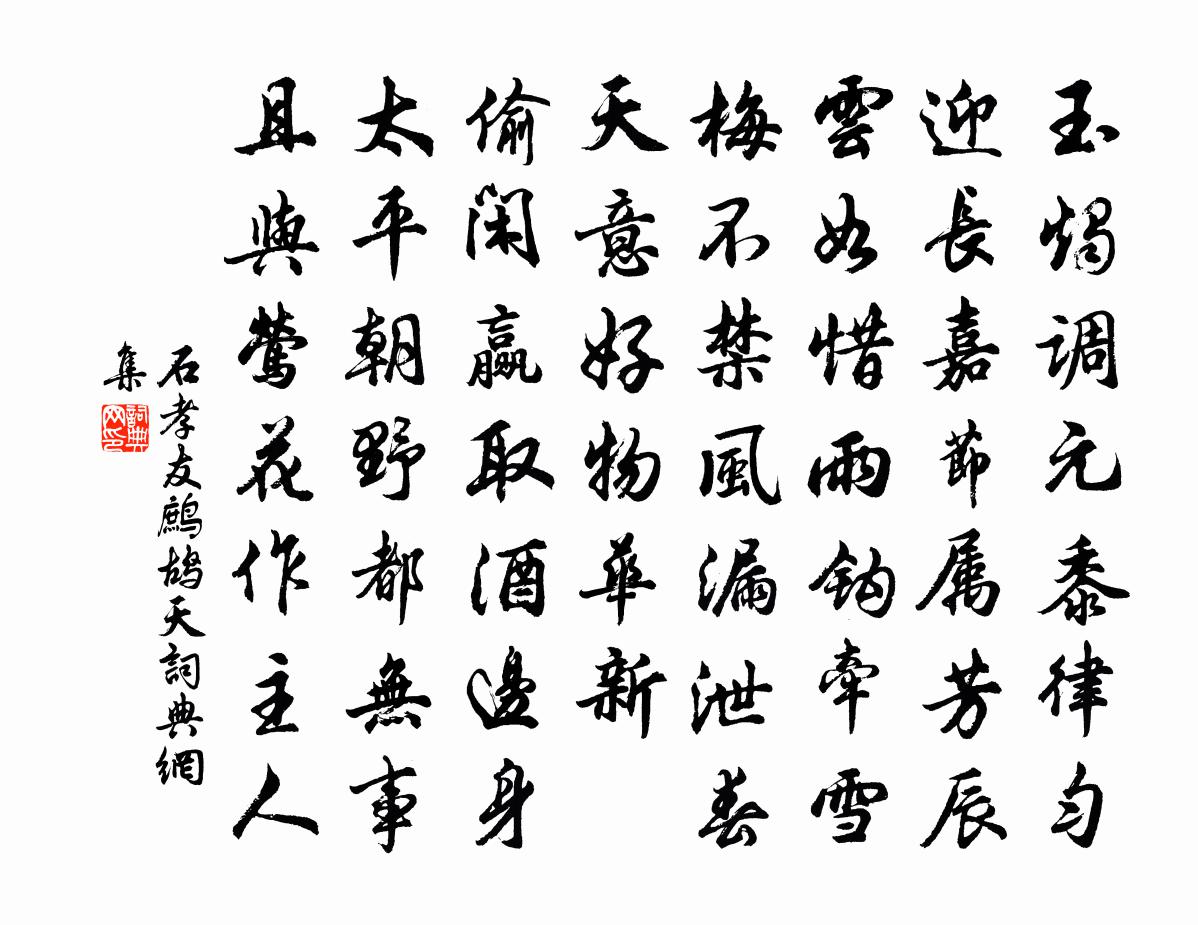 玉燭调元黍律匀
迎長嘉節属芳辰
雲如惜雨鈎牽雪
梅不禁風漏泄春
天意好物華新
偷閑贏取酒邊身
太平朝野都無事
且與鶯花作主人
石孝友鷓鴣天詞典網
集
詞典
网印